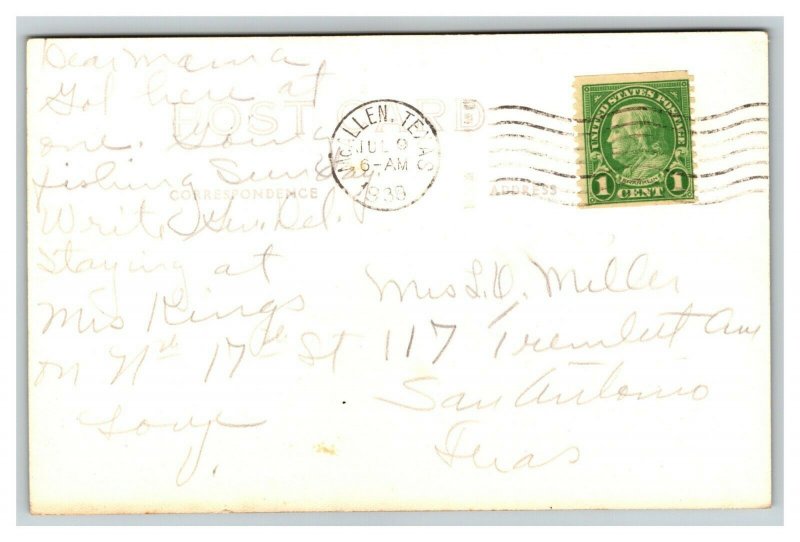 Dear Mama
Got here at
one. Going
fishing Sunday
Write Gen. Del.
Staying at
Mrs Kings
on N 17th St
Love
POST CARD
CORRESPONDENCE
ADDRESS
McALLEN, TEXAS
JUL 9
6-AM
1930
UNITED STATES POSTAGE
FRANKLIN
1 CENT 1
Mrs. L. O. Miller
117 Ave
San Antonio
Texas